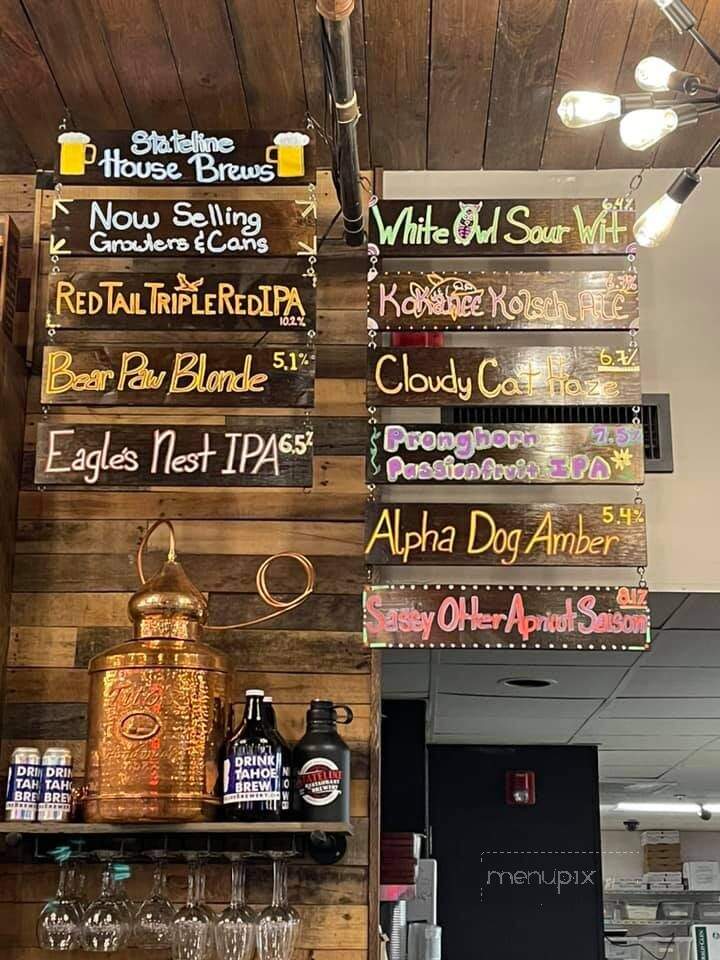 Stateline
House Brews
Now Selling
Growlers & Cans
RED TAIL TRIPLE RED IPA
10.2%
Bear Paw Blonde 5.1%
Eagle's Nest IPA 6.5%
White Owl Sour Wit 6.4%
Kokanee Kolsch Ale
Cloudy Cat Haze 6.7%
Pronghorn 7.5%
Passionfruit IPA
Alpha Dog Amber 5.4%
Sassy Otter Apricot Saison 8.1%
DRINK
TAHOE
BREW
DRIN
TAH
BRE
DRIN
TAH
BRE
STATELINE
RESTAURANT
BREWERY
menupix